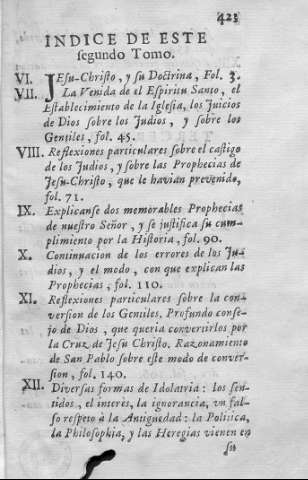 423
INDICE DE ESTE
segundo Tomo.
VI. JEsu-Christo, y su Doctrina, Fol. 3.
VII. La Venida de el Espiritu Santo, el
Establecimiento de la Iglesia, los Juicios
de Dios sobre los Judios, y sobre los
Gentiles, fol. 45.
VIII. Reflexiones particulares sobre el castigo
de los Judios, y sobre las Prophecias de
Jesu-Christo, que le havian prevenido,
fol. 71.
IX. Explicanse dos memorables Prophecias
de nuestro Señor, y se justifica su cum-
plimiento por la Historia, fol. 90.
X. Continuacion de los errores de los Ju-
dios, y el modo, con que explican las
Prophecias, fol. 110.
XI. Reflexiones particulares sobre la con-
version de los Gentiles. Profundo conse-
jo de Dios, que queria convertirlos por
la Cruz de Jesu Christo. Razonamiento
de San Pablo sobre este modo de conver-
sion, fol. 140.
XII. Diversas formas de Idolatria: los sen-
tidos, el interès, la ignorancia, vn fal-
so respeto à la Antiguedad: la Politica,
la Philosophia, y las Heregias vienen en
su